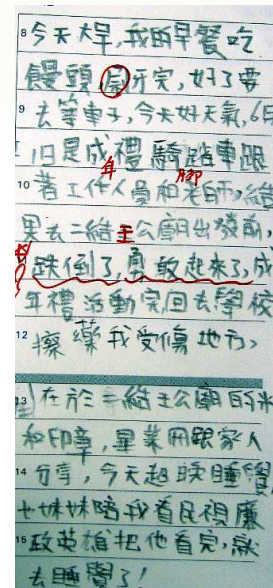 8 今天大早,我的早餐吃
饅頭,刷牙完,好了要
9 去等車子,今天好天氣,6月
1日是成禮騎踏車跟
年 腳
10 著工作人員和老師,結
果去二結王公廟出發前,
跌倒了,勇敢起來了,成
年禮活動完,回去學校
12 擦藥我受傷地方,
13 在於二結王公廟的米
和印章,畢業冊跟家人
14 分享,今天超晚睡覺
七妹妹陪我看民視廉
15 政英雄把他看完,就
去睡覺了!